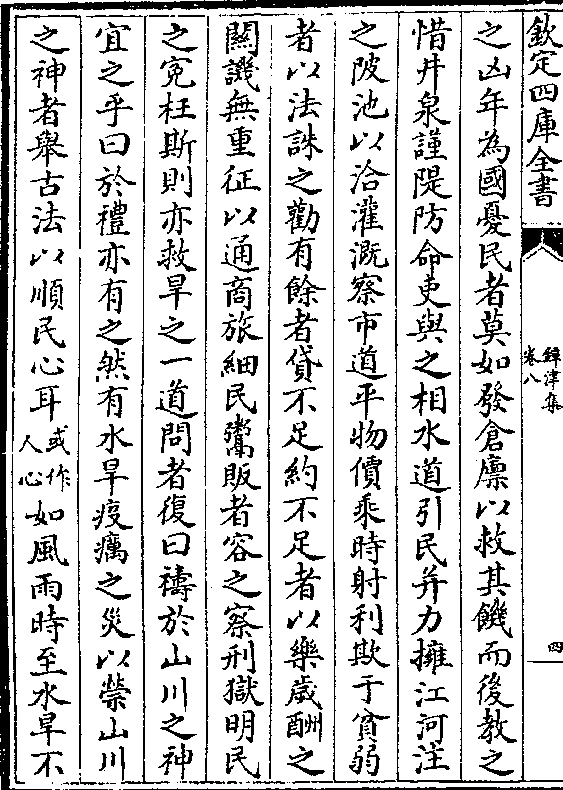 欽定四庫全書
鐔津集
卷八
四
之凶年為國憂民者莫如發倉廪以救其饑而後教之
惜井泉謹隄防命吏與之相水道引民并力擁江河注
之陂池以洽灌溉察市道平物價乘時射利欺于貧弱
者以法誅之勸有餘者貸不足約不足者以樂歲酬之
關譏無重征以通商旅細民鬻販者容之察刑獄明民
之寃枉斯則亦救旱之一道問者復曰禱於山川之神
宜之乎曰於禮亦有之然有水旱疫癘之災以禜山川
之神者舉古法以順民心耳或作人心如風雨時至水旱不